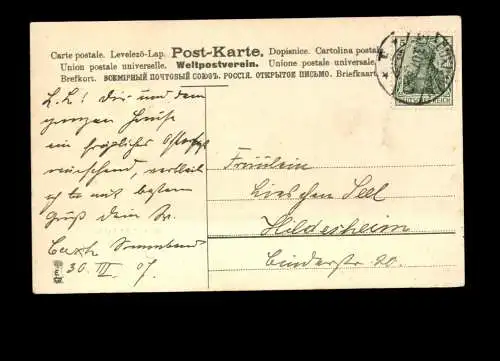 Carte postale. Levelező-Lap. Post-Karte. Dopisnice. Cartolina postale
Union postale universelle. Weltpostverein. Unione postale universale.
Brefkort. ВСЕМІРНЫЙ ПОЧТОВЫЙ СОЮЗЪ. РОССІЯ. ОТКРЫТОЕ ПИСЬМО. Briefkaart
L. L.! Dir und dem
ganzen Hause
ein fröhliches Osterfest
wünschend, verbleib
ich mit bestem
Gruß dein
Sonnabend
30. III. 07.
DEUTSCHES REICH
Fräulein
Lieschen Seel
Hildesheim
Binderstr. 20.